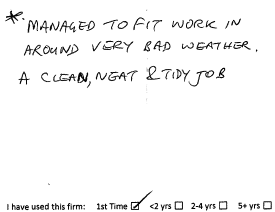 * MANAGED TO FIT WORK IN
AROUND VERY BAD WEATHER.
A CLEAN, NEAT & TIDY JOB
I have used this firm: 1st Time ☑ <2 yrs ☐ 2-4 yrs ☐ 5+ yrs ☐